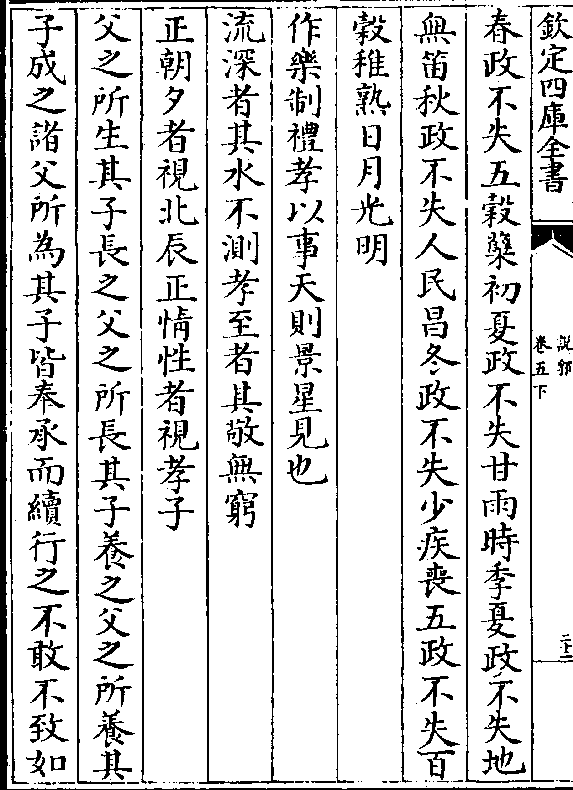 欽定四庫全書
說郛
卷五下
二十二
春政不失五穀蘖初夏政不失甘雨時季夏政不失地
無菑秋政不失人民昌冬政不失少疾喪五政不失百
穀稚熟日月光明
作樂制禮孝以事天則景星見也
流深者其水不測孝至者其敬無窮
正朝夕者視北辰正情性者視孝子
父之所生其子長之父之所長其子養之父之所養其
子成之諸父所為其子皆奉承而續行之不敢不致如